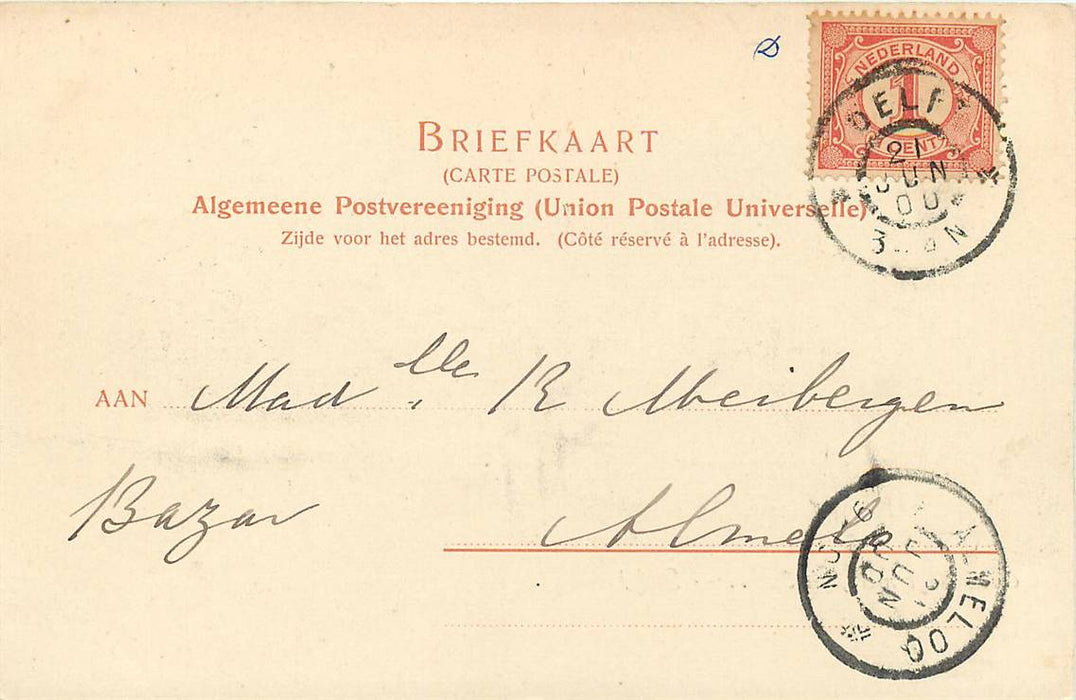 NEDERLAND
1
CENT
DELFT
21
JUN
00
3 N
BRIEFKAART
(CARTE POSTALE)
Algemeene Postvereeniging (Union Postale Universelle)
Zijde voor het adres bestemd. (Côté réservé à l'adresse).
AAN Mad.lle R Meibergen
Bazar
Almelo
ALMELOO
JUN
00